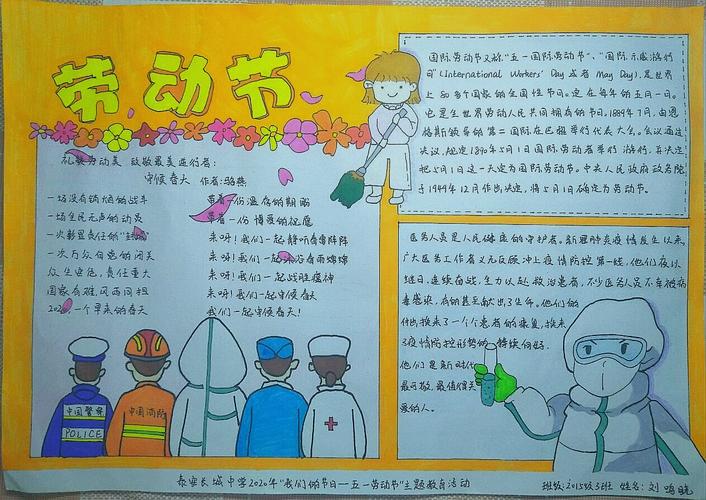 劳动节
礼赞劳动美 致敬最美逆行者:
守候春天 作者:骆燕
一场没有硝烟的战斗
一场全民无声的动员
一次彰显责任的"封城"
一次万众自觉的闭关
众生皆危,责任重大
国家有难,风雨同担
2020,一个早来的春天
带着一份温存的期盼
带着一份博爱的祝愿
来呀!我们一起静听春雷阵阵
来呀!我们一起沐浴春雨绵绵
来呀!我们一起战胜瘟神
来呀!我们一起守候春天
我们!一起守候春天!
中国警察
POLICE
中国消防
国际劳动节又称"五一国际劳动节"、"国际示威游行
日"(International Workers' Day或者May Day),是世界
上80多个国家的全国性节日。定在每年的五月一日。
它是全世界劳动人民共同拥有的节日。1889年7月,由恩
格斯领导的第二国际在巴黎举行代表大会。会议通过
决议,规定1890年5月1日国际劳动者举行游行,并决定
把5月1日这一天定为国际劳动节。中央人民政府政务院
于1949年12月作出决定,将5月1日确定为劳动节。
医务人员是人民健康的守护者。新冠肺炎疫情发生以来,
广大医务工作者义无反顾冲上疫情防控第一线,他们夜以
继日,连续奋战,全力以赴救治患者,不少医务人员不幸被病
毒感染,有的甚至献出了生命。他们的
付出换来了一个个患者的康复,换来
了疫情防控形势的持续向好。
他们是新时代
最可敬、最值得关
爱的人。
泰安长城中学2020年"我们的节日—五一劳动节"主题教育活动
班级:2015级3班 姓名:刘鸣晓